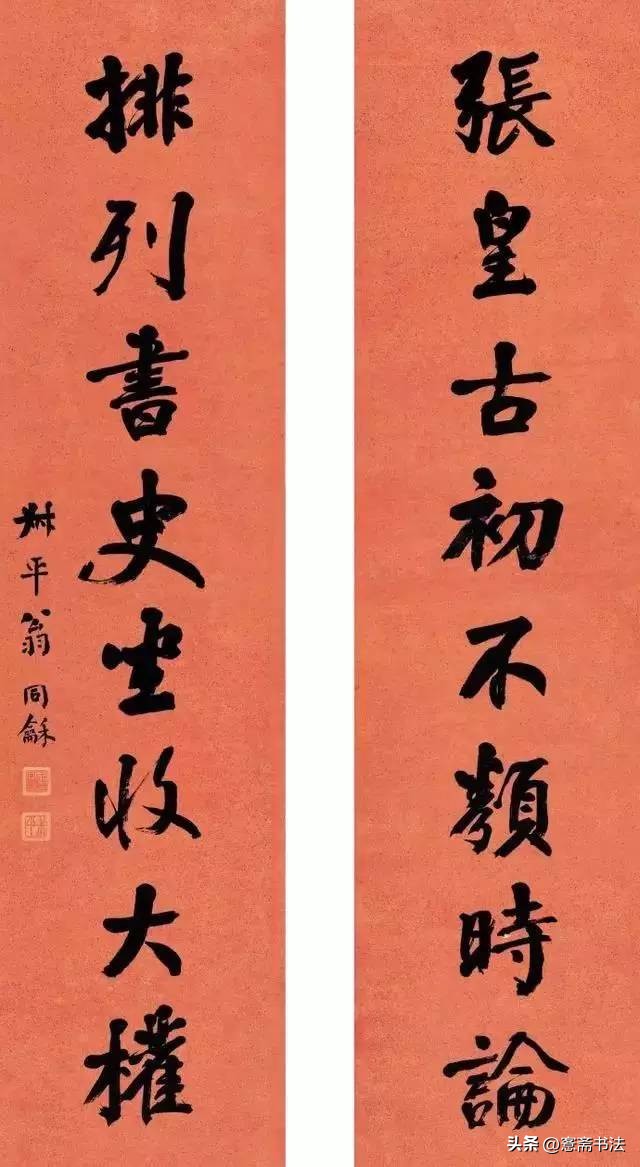 張皇古初不類時論
排列書史坐收大權
尗平翁同龢
头条 @斋书法